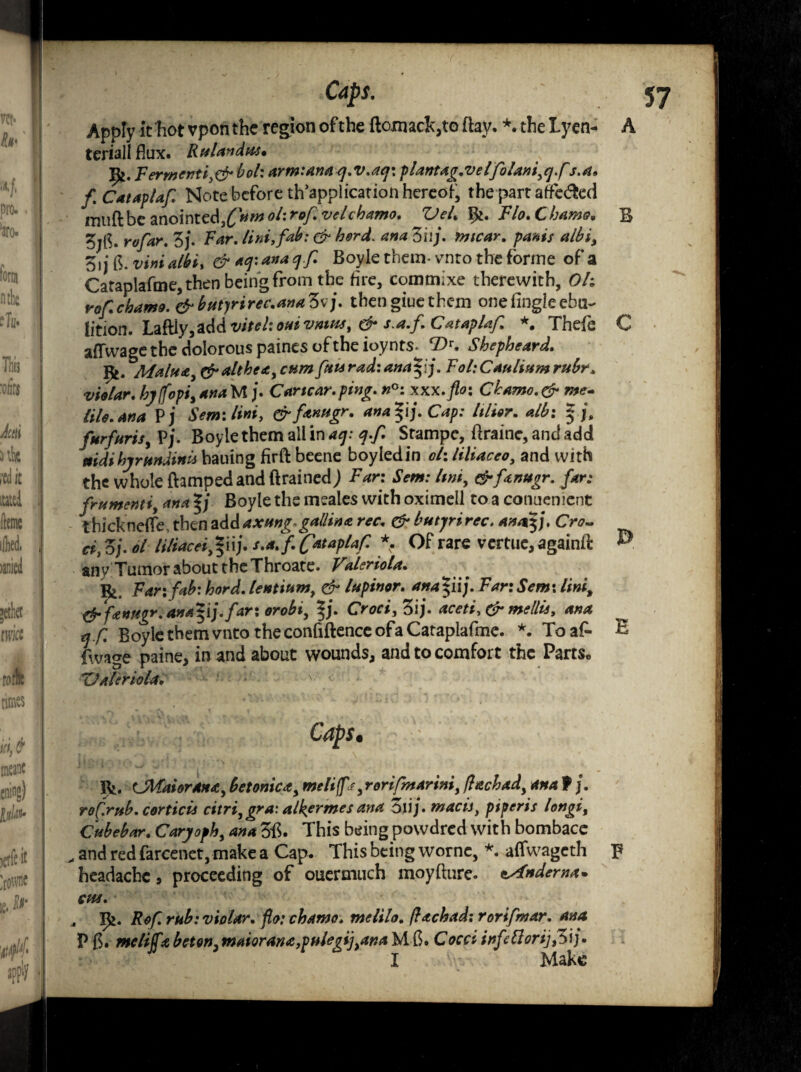 Caps. 57
Apply it hot vpon the region of the stomack,to stay. *. the Lyen- A
teriall flux. Rulandus.
℞. Fermenti,& bol: arm:ana q.v.aq: plantag.vel solani,q.ſ s.a.
f. Cataplaſ. Note before th'application hereof, the part affected
must be anointed,Cum ol: roſ. vel chamo. Vel. ℞. Flo. Chamo. B
ʒjß. rosar. ʒj. Far. lini,fab: & hord. ana ʒiij. micar. panis albi,
ʒij ß. vini albi, & aq: ana q.ſ. Boyle them vnto the forme of a
Cataplasme,then being from the fire, commixe therewith, Ol:
roſ. chamo. & butyri rec.ana ʒvj. then giue them one single ebu-
lition. Lastly,add vitel: oui vnius, & s.a.f. Cataplaſ. *. These C
asswage the dolorous paines of the ioynts. Dʳ. Shepheard.
℞. Maluæ, & altheæ, cum suis rad: ana ℥ij. Fol: Caulium rubr.
violar. hyssopi, ana M j. Caricar.ping. nº: xxx. flo: Chamo.& me-
lilo. ana P j Sem: lini, & fænugr. ana ℥ij. Cap: lilior. alb: ℥ j.
furfuris, Pj. Boyle them all in aq: q.ſ. Stampe, straine, and add
nidi hyrundinis hauing first beene boyled in ol: liliaceo, and with
the whole stamped and strained) Far: Sem: lini, & fænugr. far:
frumenti, ana ℥j Boyle the meales with oximell to a conuenient
thicknesse, then add axung. gallinæ rec. & butyri rec. ana ℥j. Cro-
ci, ʒj. ol liliacei, ℥iij. s.a.f. Cataplaſ. *. Of rare vertue, against D
any Tumor about the Throate. Valeriola.
℞. Far: fab: hord. lentium, & lupinor. ana ℥iij. Far: Sem: lini,
& fænugr. ana ℥ij. far: orobi, ℥j. Croci, ʒij. aceti, & mellis, ana
q.ſ. Boyle them vnto the consistence of a Cataplasme. *. To as- E
swage paine, in and about wounds, and to comfort the Parts.
Valeriola.
Caps.
℞. Maioranæ, betonicæ, melissæ, rorismarini, stæchad, ana P j.
roſ.rub. corticis citri, gra: alkermes ana ʒiij. macis, piperis longi,
Cubebar. Caryoph, ana ʒß. This being powdred with bombace
and red sarcenet, make a Cap. This being worne, *. asswageth F
headache, proceeding of ouermuch moysture. Anderna-
cus.
℞. Roſ. rub: violar. flo: chamo. melilo. stæchad: rorismar. ana
P ß. melissæ beton, maioranæ,pulegij,ana M ß. Cocci infectorij,ʒij.
I Make